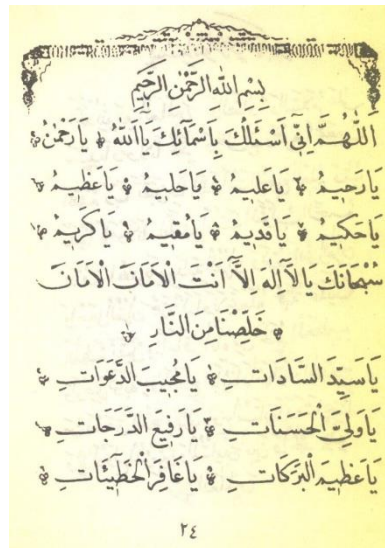 بِسْمِ اللهِ الرَّحْمٰنِ الرَّحِيمِ
اَللّٰهُمَّ اِنِّي اَسْئَلُكَ بِاَسْمَآئِكَ يَآ اَللهُ يَا رَحْمٰنُ
يَا رَحِيمُ يَا عَلِيمُ يَا حَلِيمُ يَا عَظِيمُ
يَا حَكِيمُ يَا قَدِيمُ يَا مُقِيمُ يَا كَرِيمُ
سُبْحَانَكَ يَا لَآ اِلٰهَ اِلَّآ اَنْتَ الْاَمَانَ الْاَمَانَ
خَلِّصْنَا مِنَ النَّارِ
يَا سَيِّدَ السَّادَاتِ يَا مُجِيبَ الدَّعَوَاتِ
يَا وَلِيَّ الْحَسَنَاتِ يَا رَفِيعَ الدَّرَجَاتِ
يَا عَظِيمَ الْبَرَكَاتِ يَا غَافِرَ الْخَطِيئَاتِ
٢٤